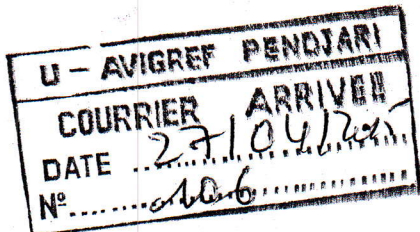 U - AVIGREF PENDJARI
COURRIER ARRIVEE
DATE 27/04/2015
Nº